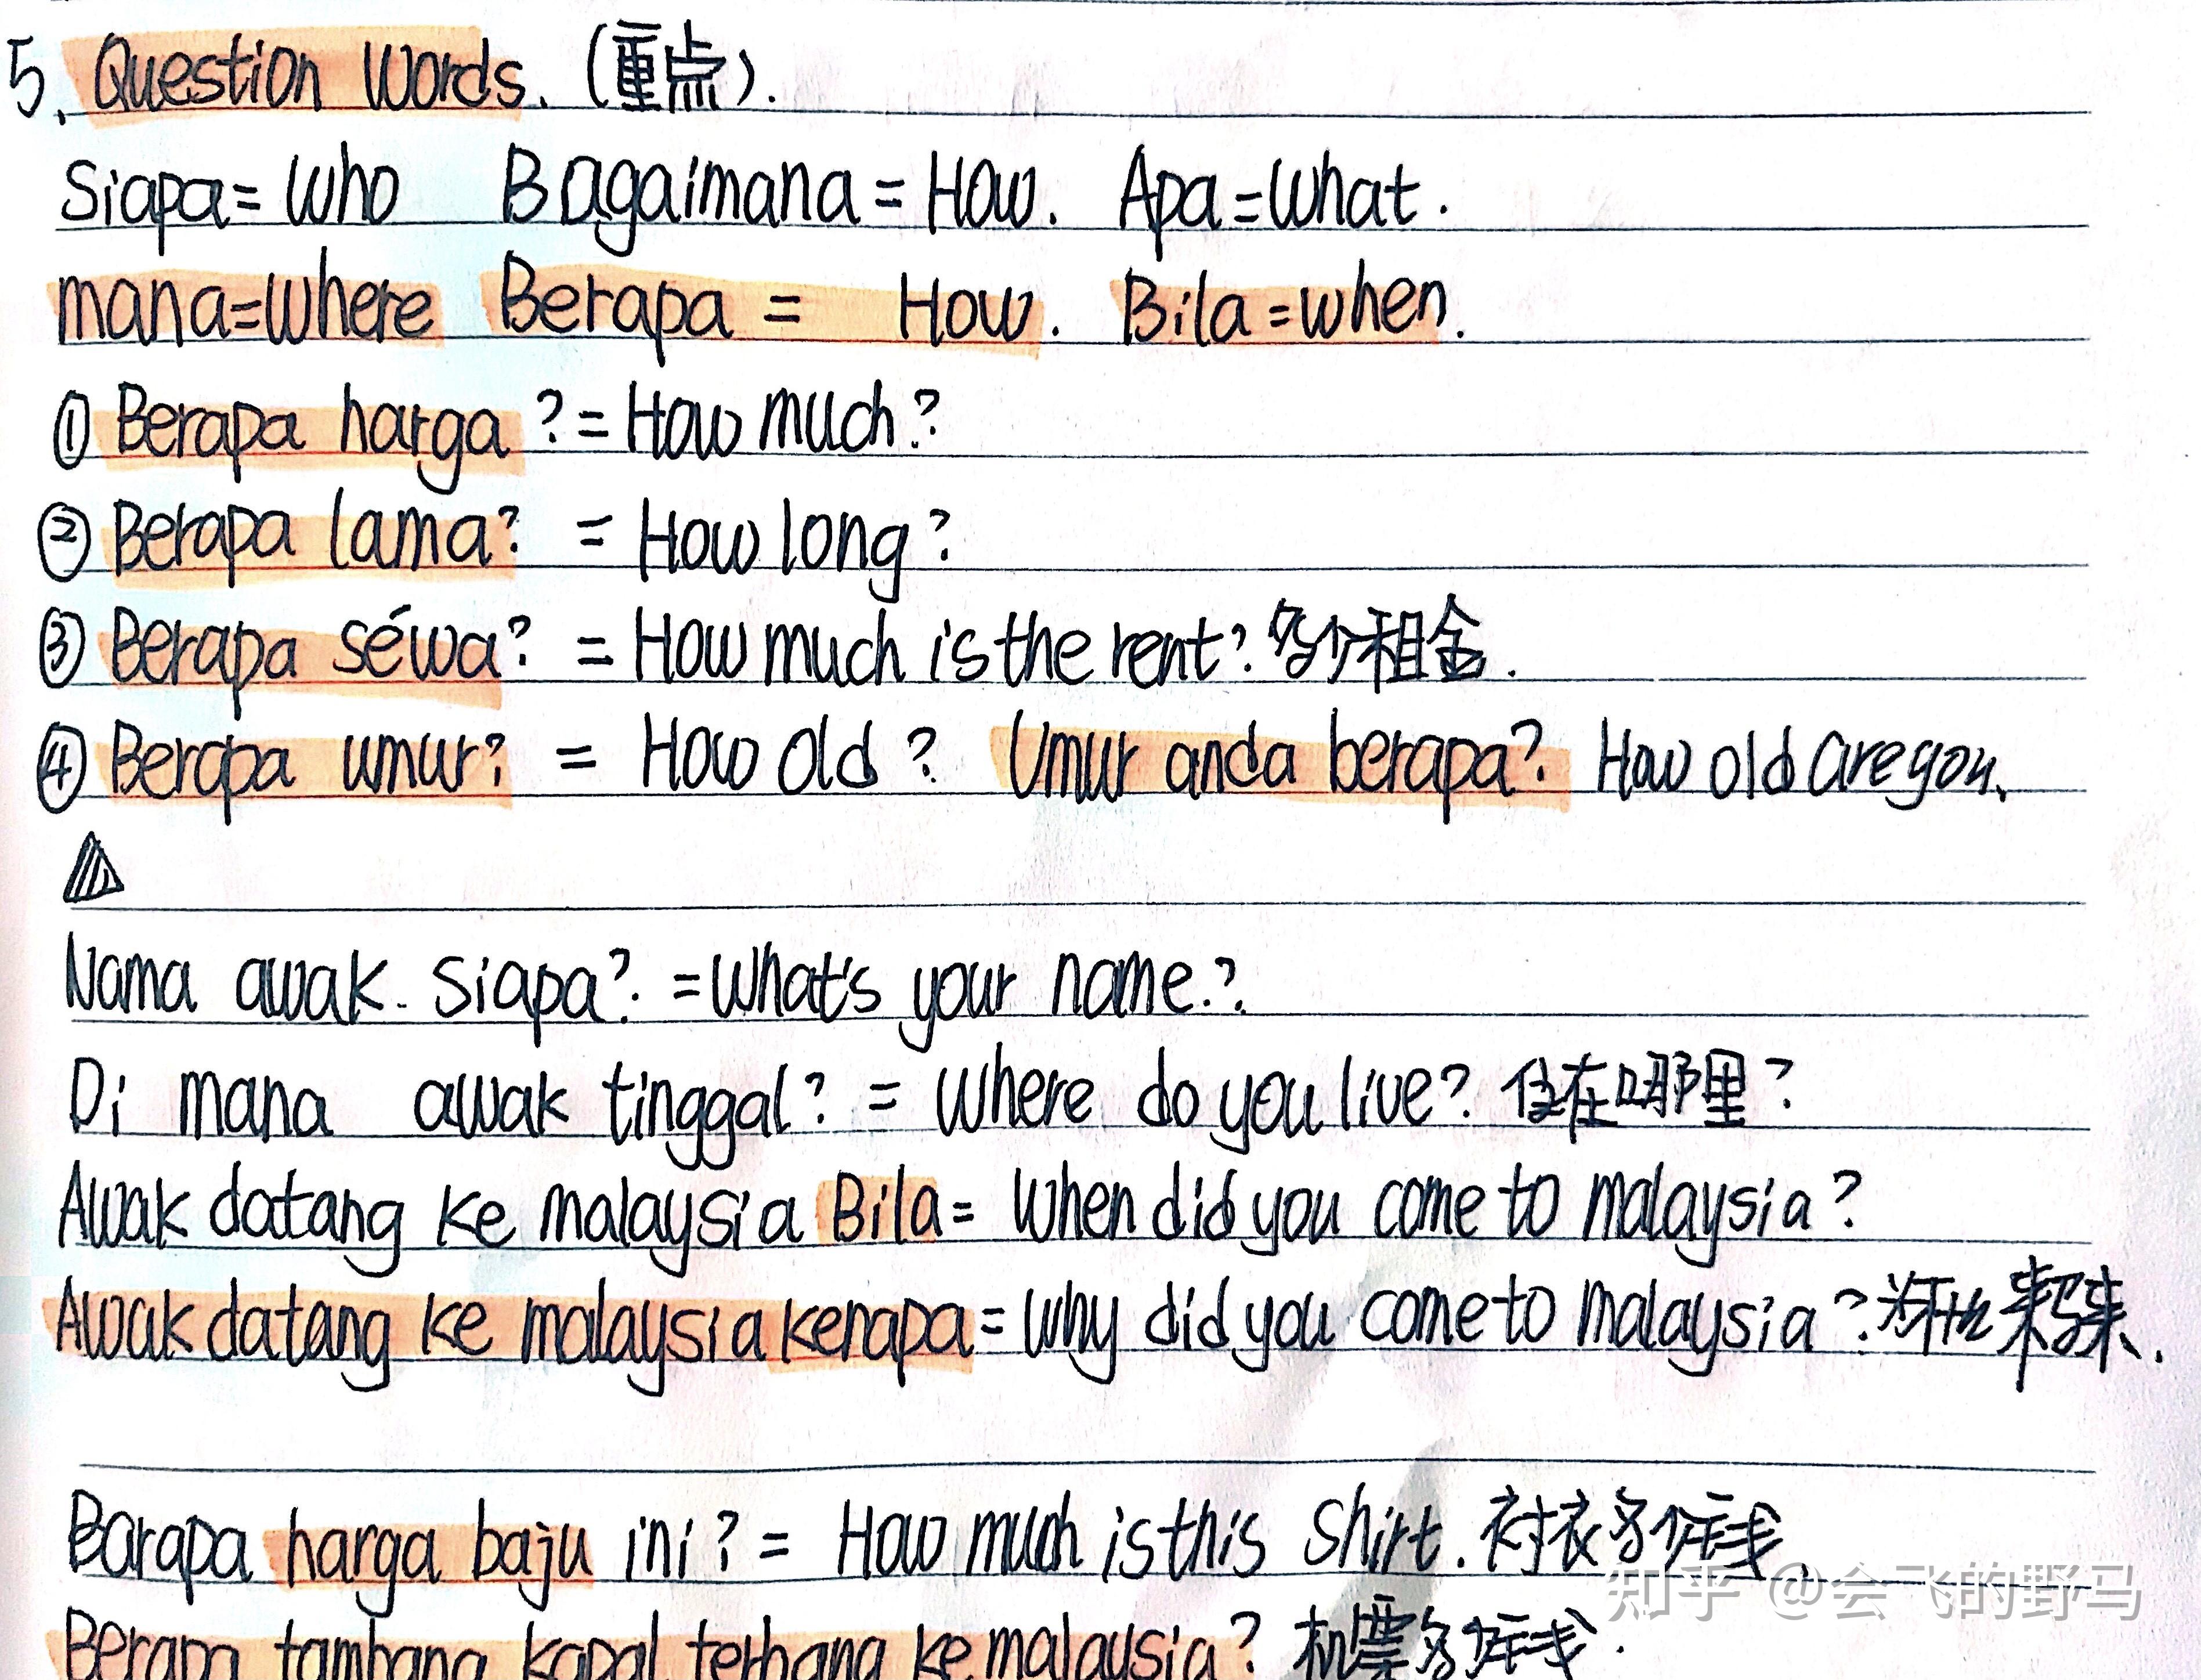 5. Question Words. (重点).
Siapa = Who Bagaimana = How. Apa = What.
mana = Where Berapa = How. Bila = when.
① Berapa harga ? = How much ?
② Berapa lama ? = How long ?
③ Berapa séwa ? = How much is the rent ? 多少租金.
④ Berapa umur ? = How old ? Umur anda berapa ? How old are you.
Nama awak. Siapa ? = What's your name. ?
Di mana awak tinggal ? = Where do you live ? 住在哪里 ?
Awak datang ke malaysia Bila = When did you come to malaysia ?
Awak datang ke malaysia kenapa = Why did you come to malaysia ? 为什么来马来.
Barapa harga baju ini ? = How much is this shirt. 衬衣多价钱.
Berapa tambang kapal terbang ke malaysia ? 机票多价钱.
知乎 @会飞的野马